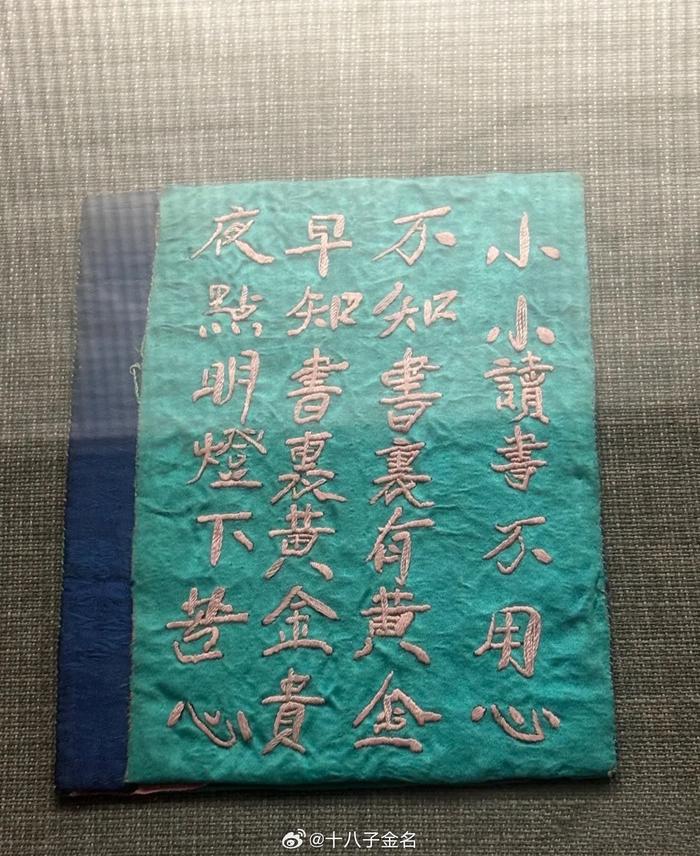 小小讀書不用心
不知書裏有黃金
早知書裏黃金貴
夜點明燈下苦心
@十八子金名